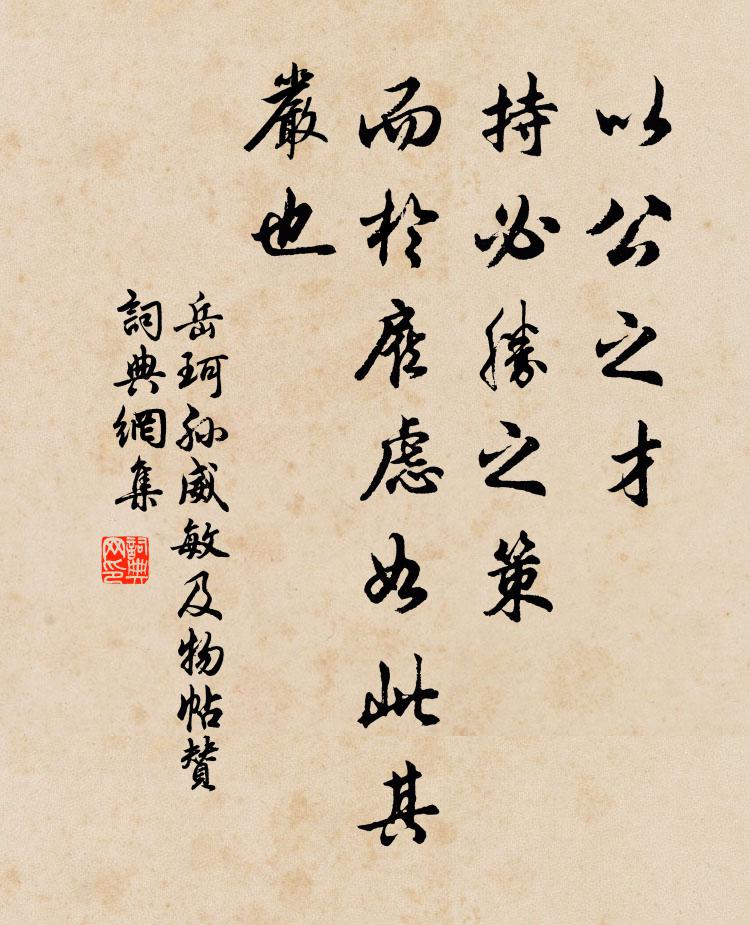 以公之才
持必勝之策
而於扆慮如此其
嚴也
岳珂孫威敏及物帖贊
詞典網集
詞典
网印